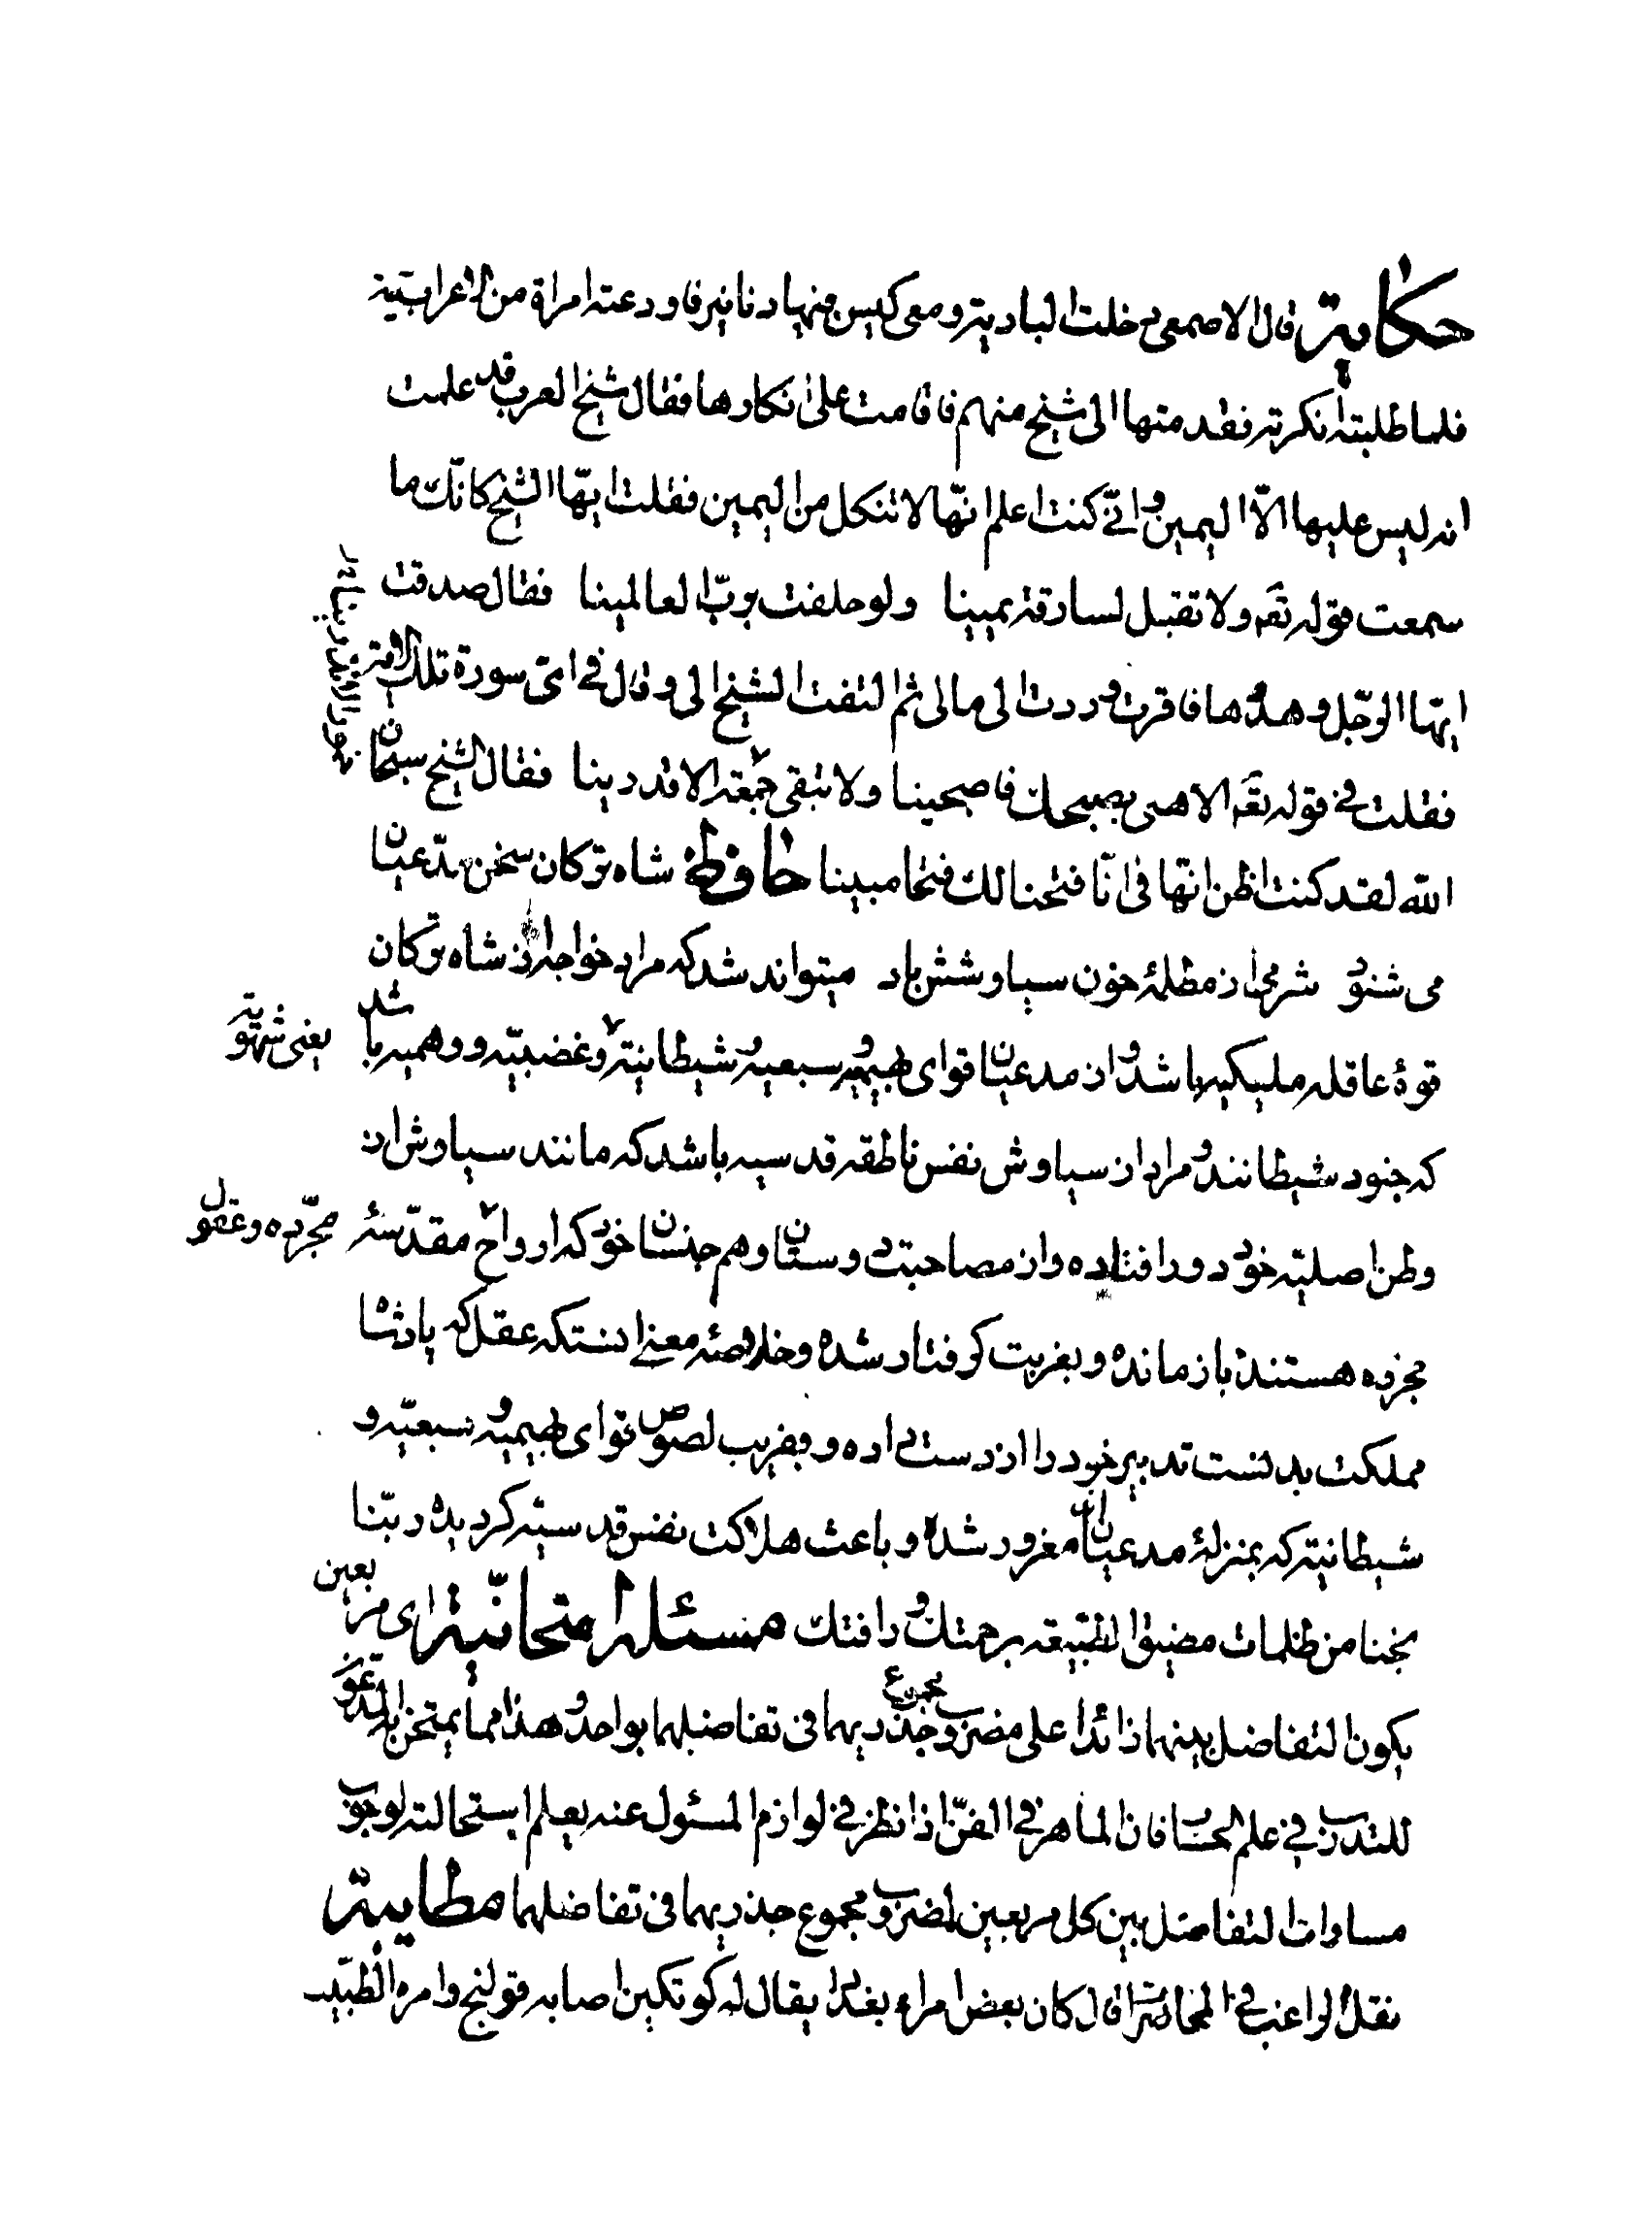 حکایة قال الاصمعی دخلت البادیة ومعی کیس فیها دنانیر فاودعته امراة من الاعرابیة
فلما طلبته انکرته فقدمتها الی شیخ منهم فاقامت علی انکارها فقال شیخ العرب قد علمت
انه لیس علیها الّا الیمین وانّی کنت اعلم انّها لا تنکل من الیمین فقلت ایّها الشیخ کانّک ما
سمعت قوله تعه ولا تقبل لسارقة یمینا ولو حلفت بربّ العالمینا فقال صدقت
ایّها الرّجل وهدّدها فاقرت وردت الی مالی ثم التفت الشیخ الی وقال فی ایّ سورة تلک الایة
فقلت فی قوله تعه الا هبی بصحنک فاصبحینا ولا تبقی خمور الاندرینا فقال الشیخ سبحان
خمور الاندرینا
الله لقد کنت اظن انّها فی انّا فتحنا لک فتحا مبینا حافظ شاه ترکان سخن مدّعیان
می شنود شرمی از مظلمۀ خون سیاوشش باد میتواند شد که مراد خواجه از شاه ترکان
قوۀ عاقله ملیکیه باشد و از مدعیان قوای بهیمیه و سبعیه و شیطانیة وغضبیّه و وهمیه باشد
یعنی شهویة
که جنود شیطانند و مراد از سیاوش نفس ناطقه قدسیه باشد که مانند سیاوش از
وطن اصلیّه خود دور افتاده و از مصاحبت دوستان و هم جنسان خود که ارواح مقدّسۀ
مجرّده و عقول
مجرده هستند باز مانده و بغربت گرفتار شده و خلاصۀ معنی اینستکه عقل که پادشاه
مملکت بدنست تدبیر خود را از دست داده و بفریب لصوص قوای بهیمیه و سبعیّه و
شیطانیّه که بمنزلۀ مدعیان اند مغرور شده و باعث هلاکت نفس قدسیّه گردیده ربّنا
نجنا من ظلمات مضیق الطبیعه برحمتک و رافتک مسئلة امتحانیّة ای مربعین
یکون التفاضل بینهما زائدا علی مضروب مجموع جذریهما فی تفاضلهما بواحد و هذا مما یمتحن به المدعون
للتدرب فی علم الحساب فان الماهر فی الفنّ اذا نظر فی لوازم المسئول عنه یعلم استحالته لوجوب
مساوات التفاضل بین کل مربعین لمضروب مجموع جذریهما فی تفاضلهما مطایبة
نقل الراغب فی المحاضرات قال کان بعض امراء بغداد یقال له کوتکین اصابه قولنج وامره الطبیب